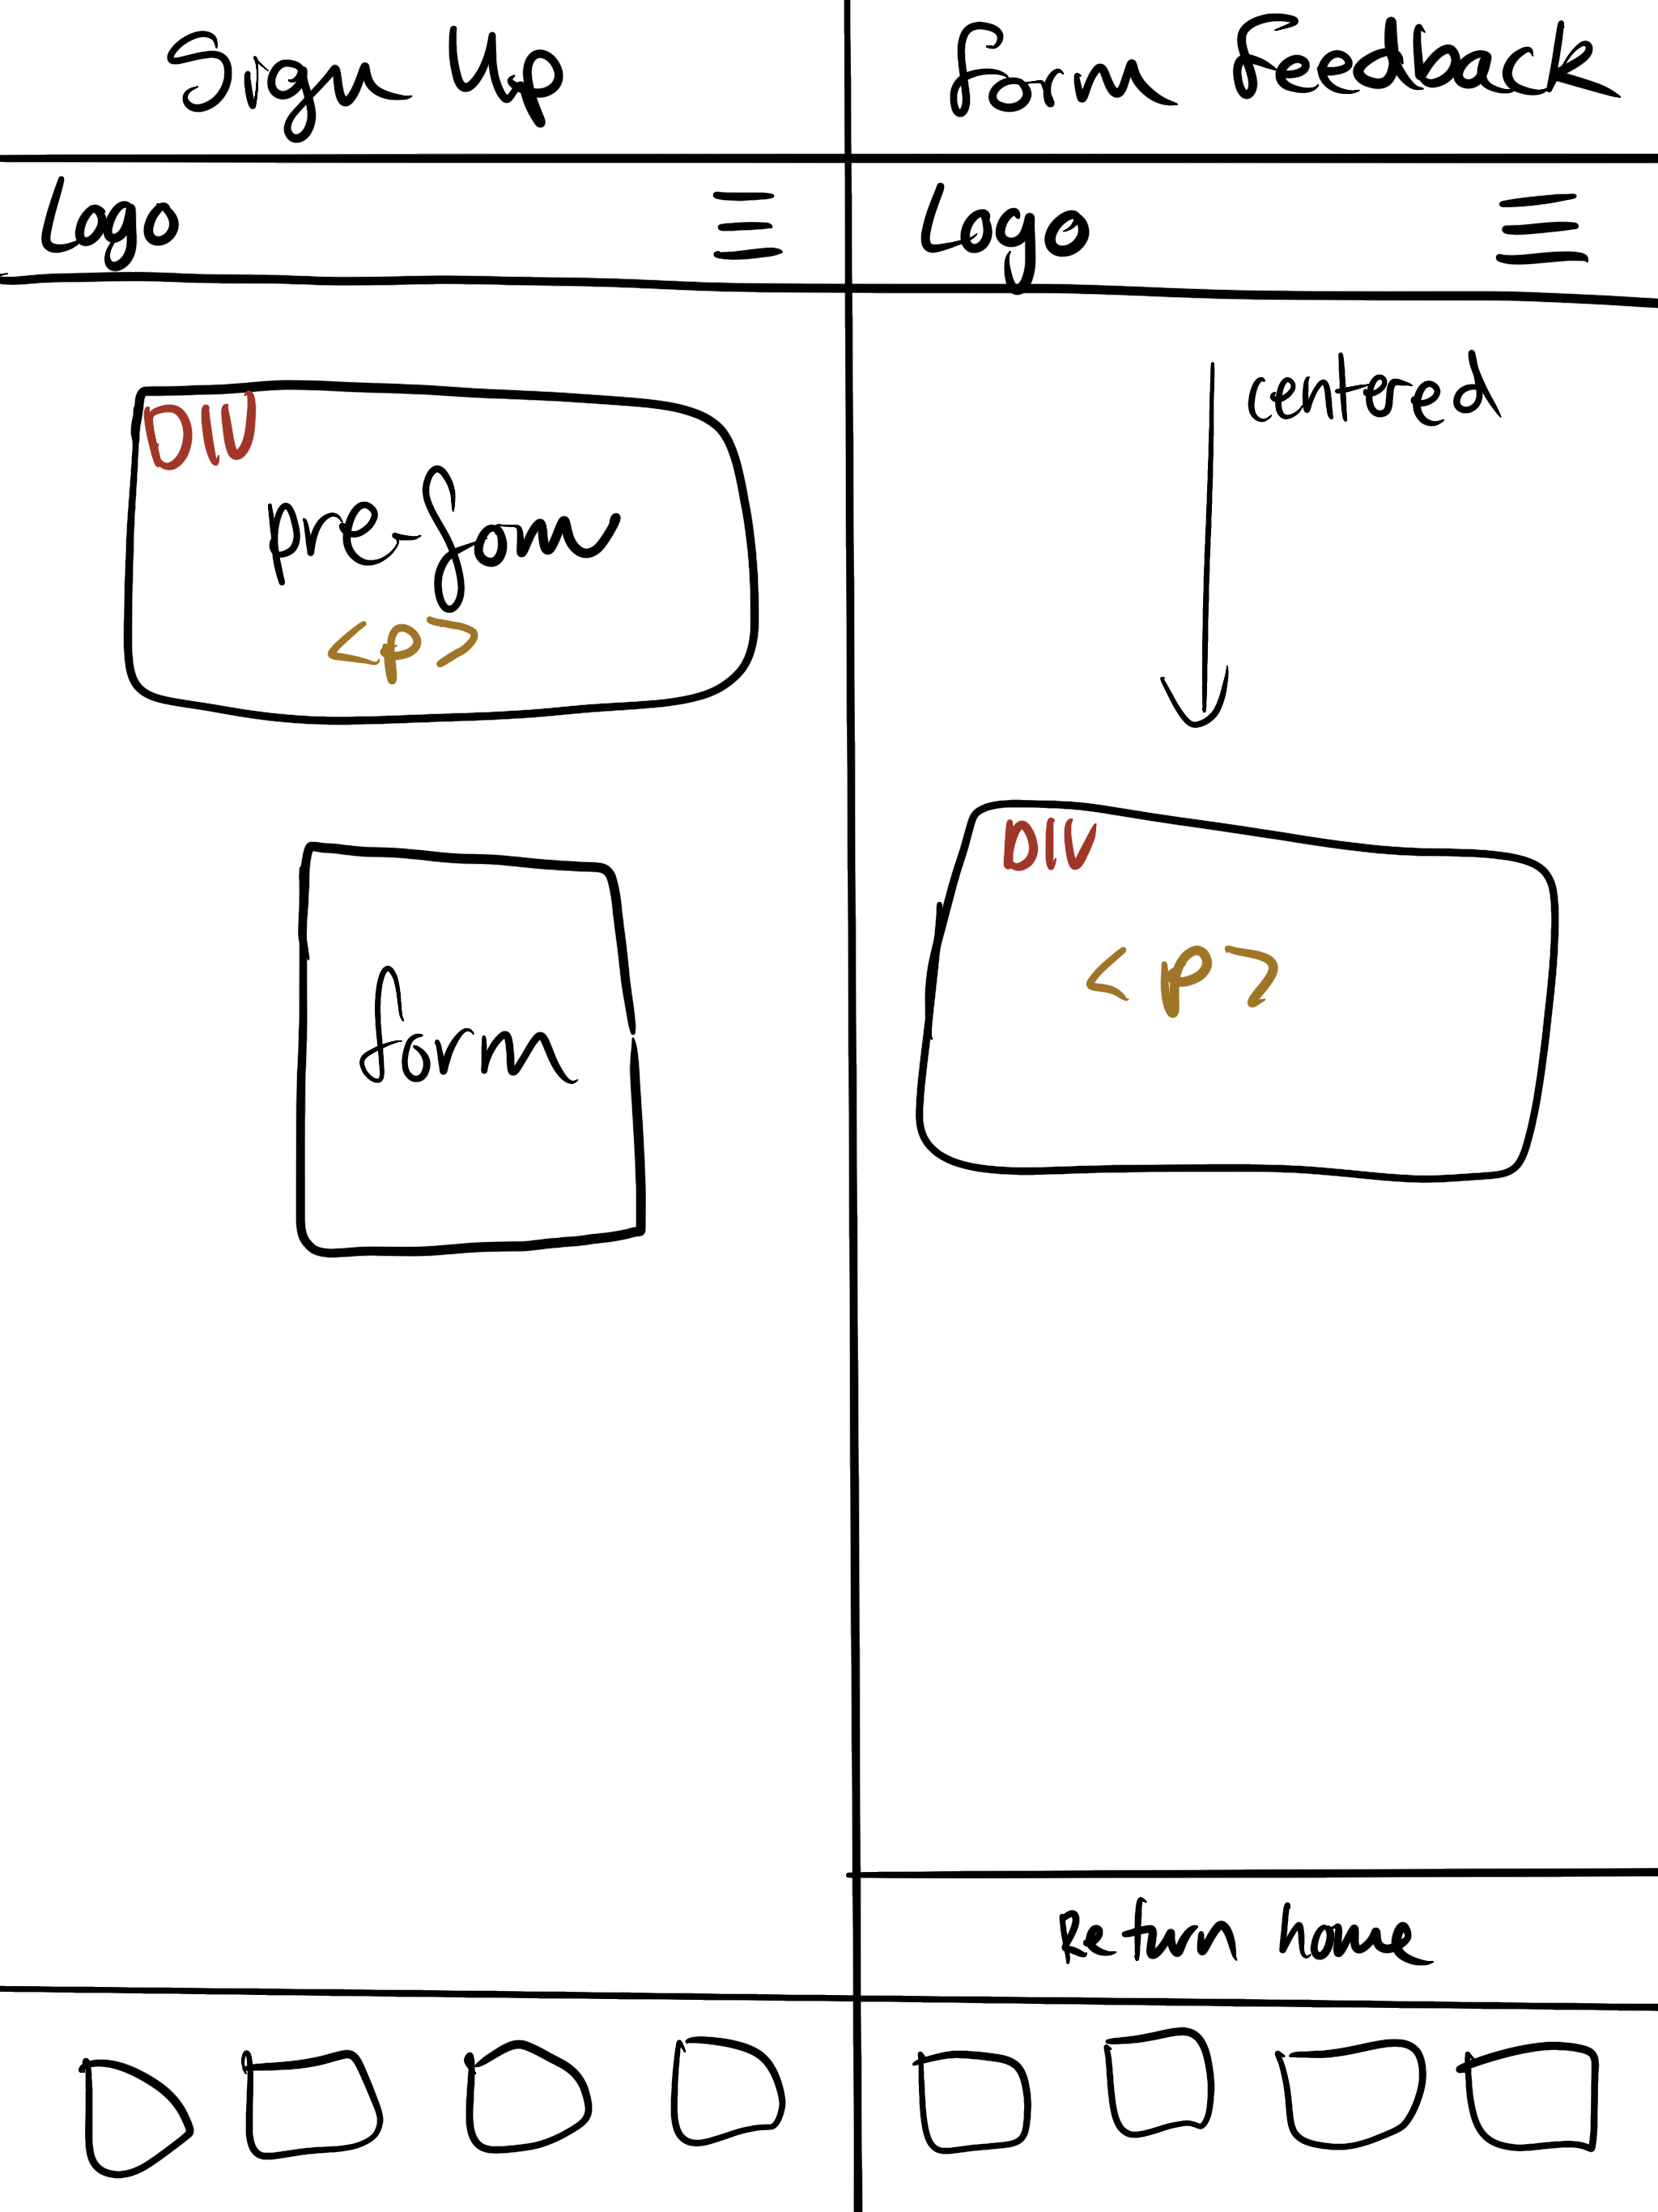 Sign Up
Logo
DIV
pre-form
<p>
form
Form Feedback
Logo
centered
DIV
<p>
Return home